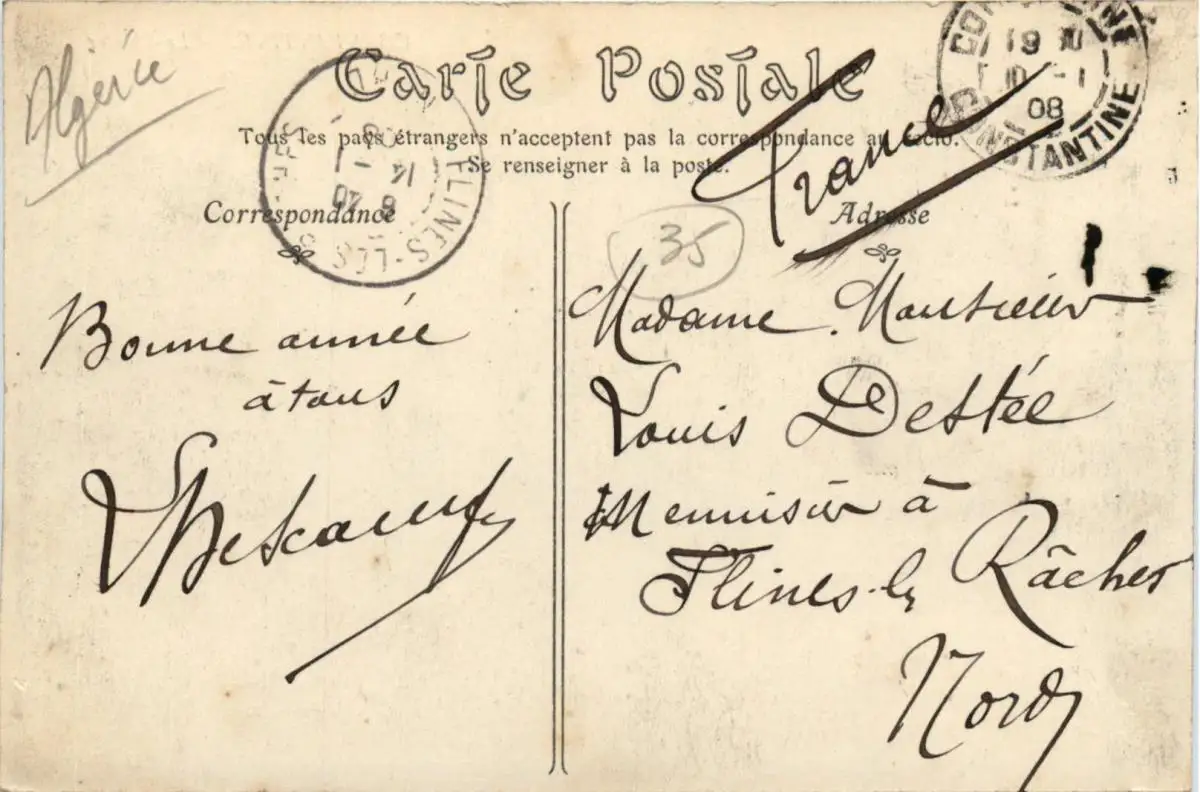 Algérie
Carte Postale
Tous les pays étrangers n'acceptent pas la correspondance au recto.
Se renseigner à la poste.
France
CONSTANTINE
CONSTANTINE
19
10 - 1
08
FLINES-LES-R
14 - 1
08
Correspondance
Adresse
35
Bonne année
à tous
LDescamps
Madame, Monsieur
Louis Destée
Menuisier à
Flines-les Râches
Nord